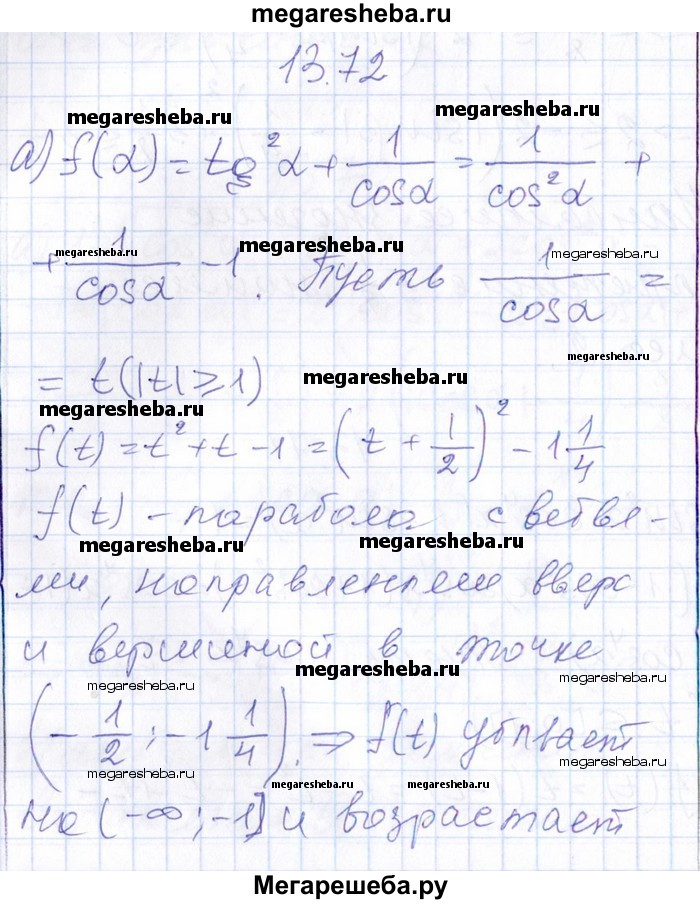 megaresheba.ru
13.72
megaresheba.ru megaresheba.ru
а) f(α) = tg²α + 1/cosα = 1/cos²α +
megaresheba.ru megaresheba.ru megaresheba.ru
+ 1/cosα - 1. Пусть 1/cosα =
megaresheba.ru
= t (|t| ⩾ 1)
megaresheba.ru
megaresheba.ru
f(t) = t² + t - 1 = (t + 1/2)² - 1 1/4
f(t) - парабола с ветвя-
megaresheba.ru megaresheba.ru
ми, направленными вверх
и вершиной в точке
megaresheba.ru megaresheba.ru megaresheba.ru
(-1/2; -1 1/4). ⇒ f(t) убывает
megaresheba.ru megaresheba.ru
megaresheba.ru megaresheba.ru
на (-∞; -1] и возрастает
Мегарешеба.ру